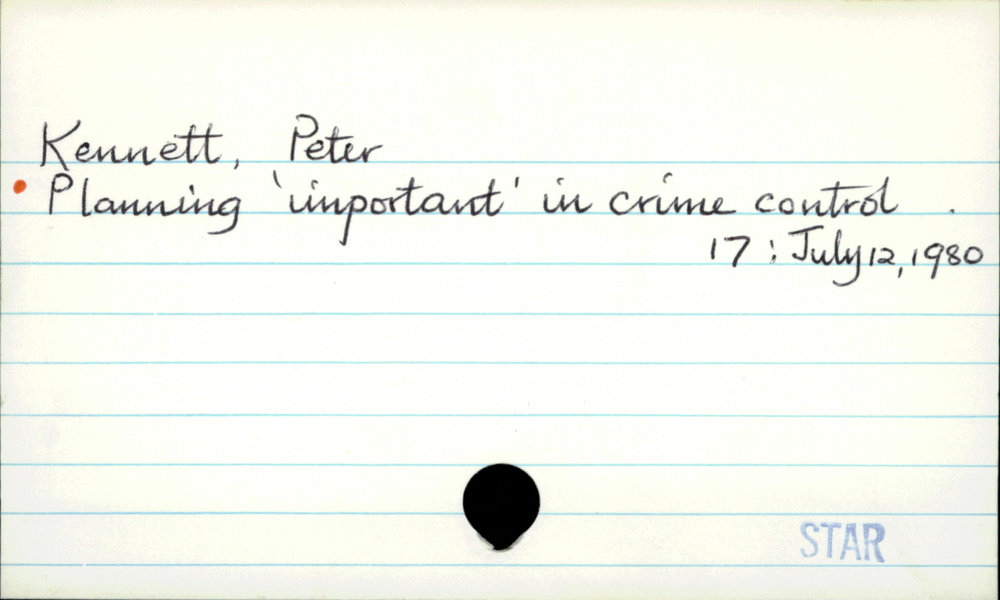 Kennett, Peter
Planning 'important' in crime control .
17 : July 12, 1980
STAR